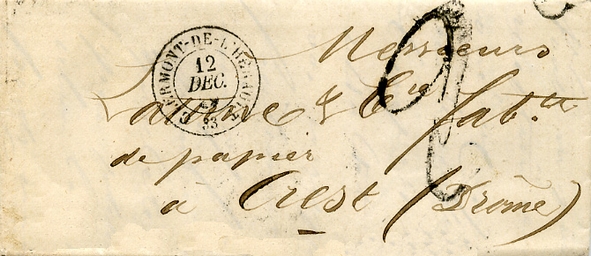 CLERMONT-DE-L'HERAULT
12
DEC.
33
Messieurs
& Cie fabts
de papier
à Crest (Drôme)
2